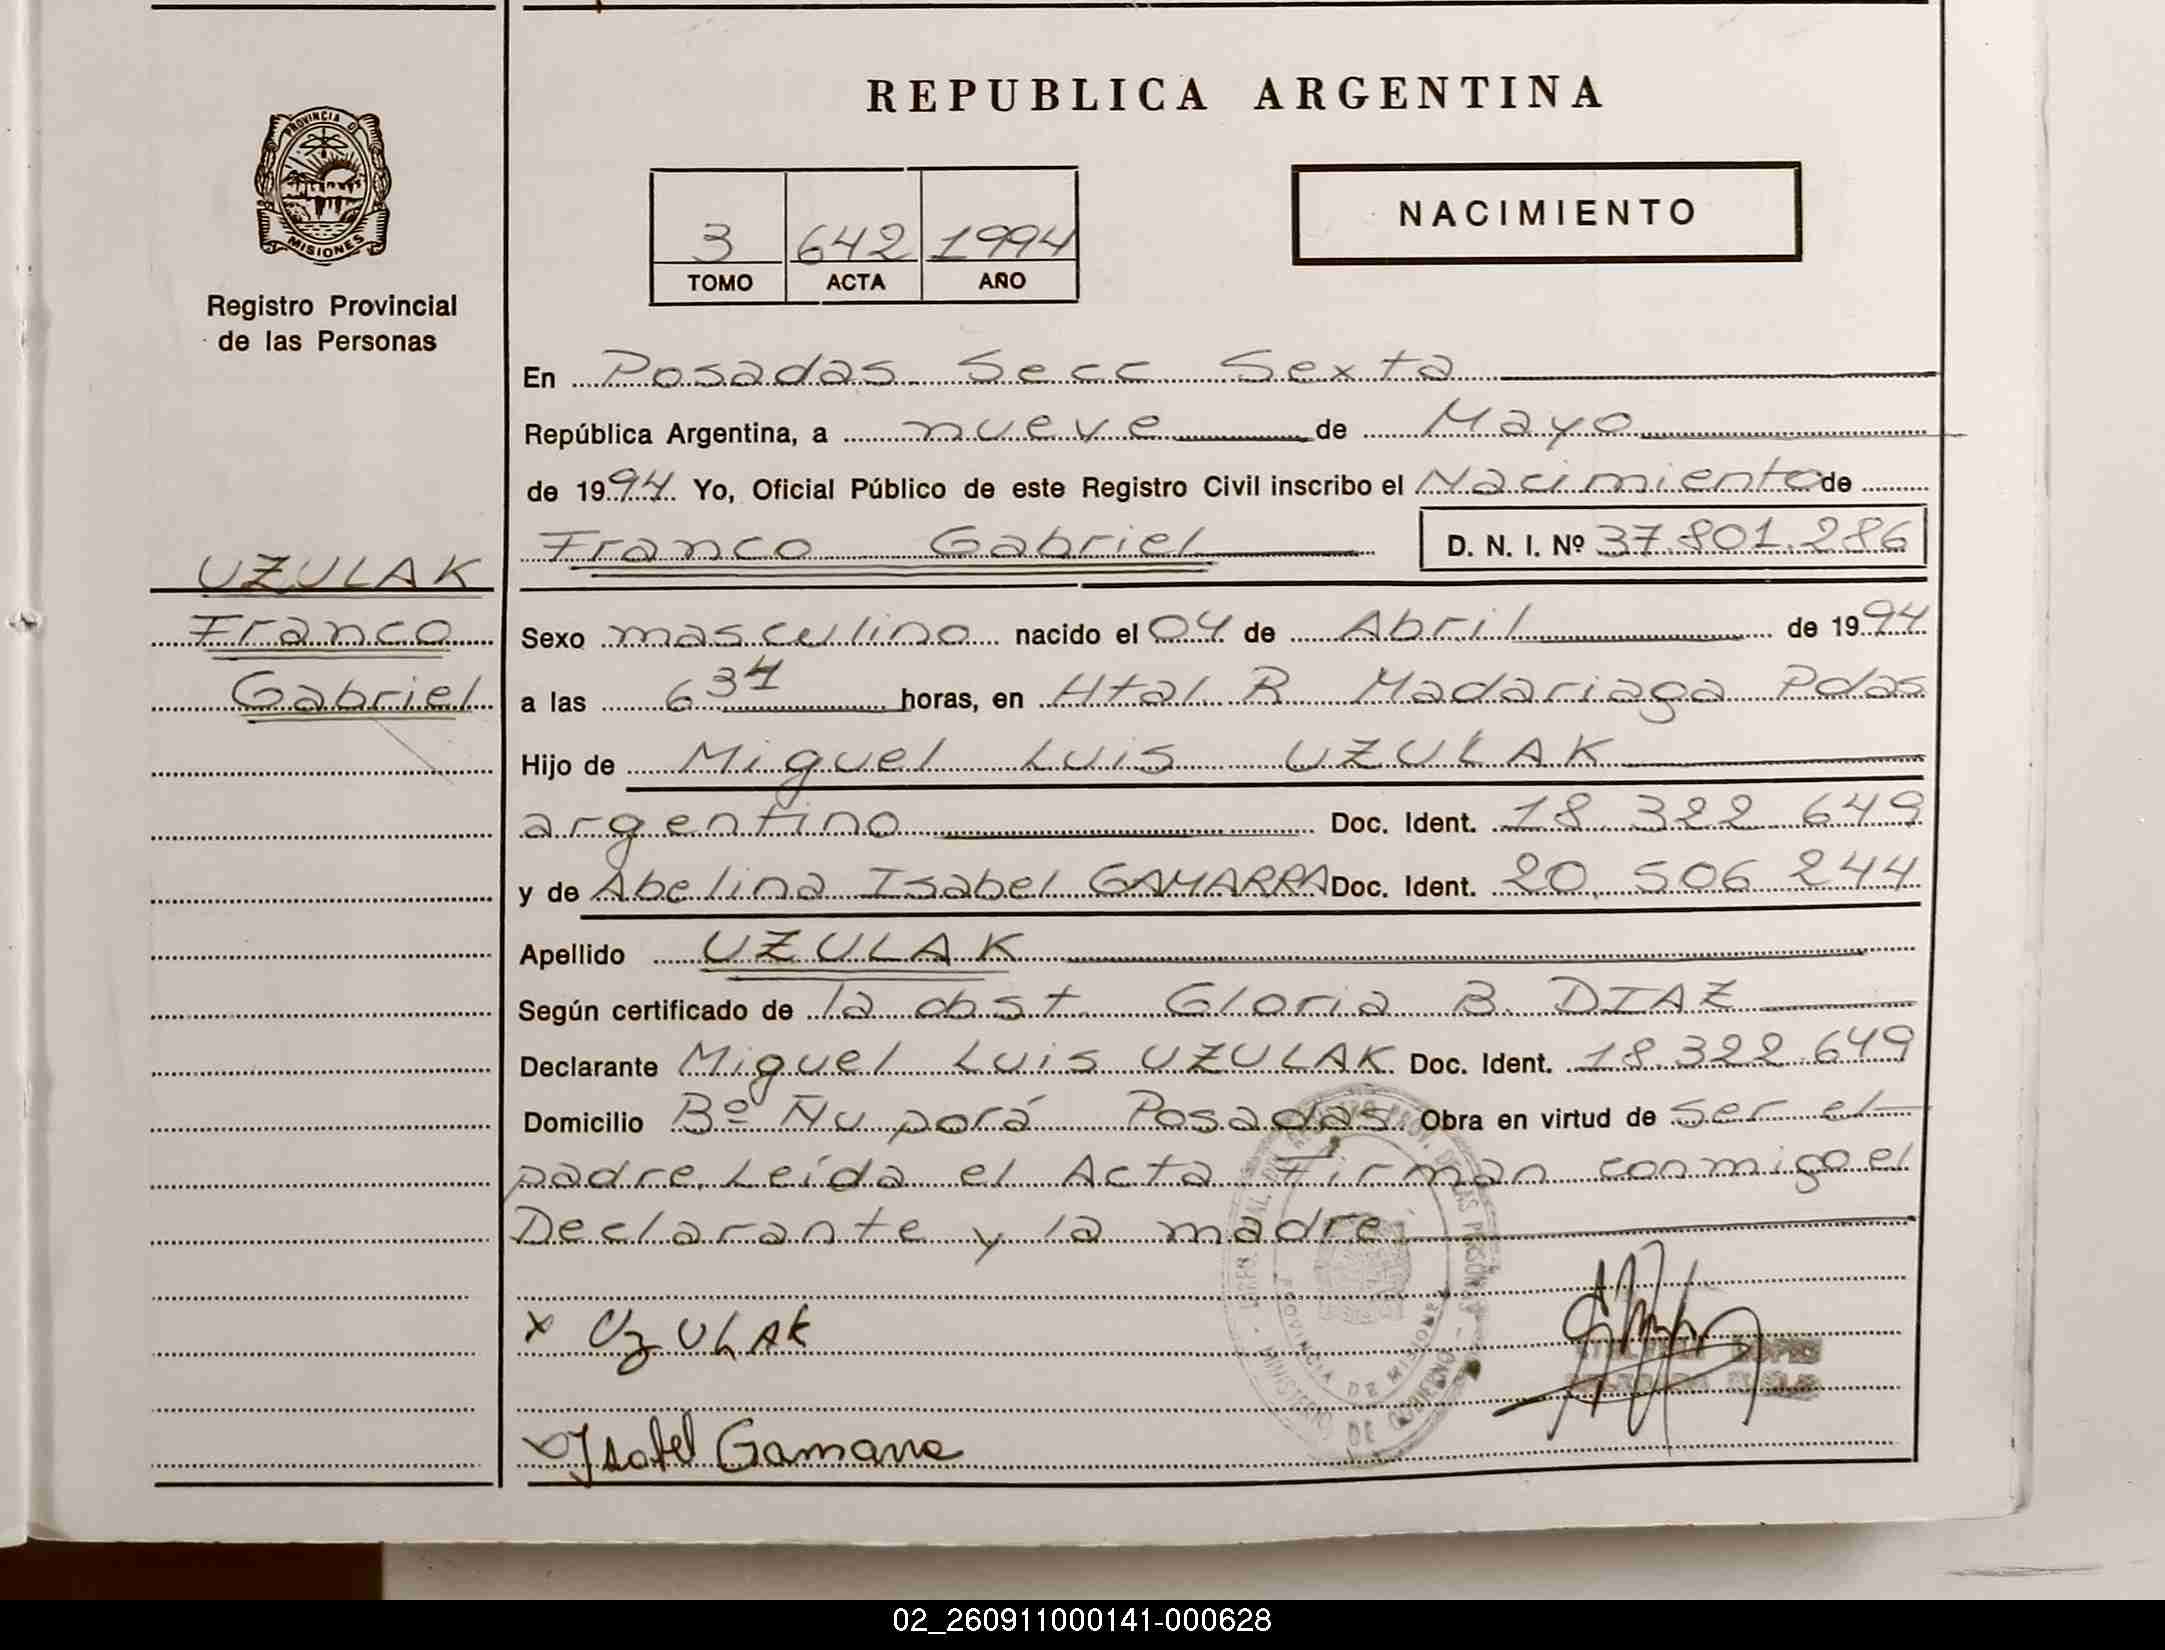 REPUBLICA ARGENTINA
PROVINCIA DE
MISIONES
Registro Provincial
de las Personas
3 642 1994
TOMO ACTA AÑO
NACIMIENTO
En Posadas Secc Sexta
República Argentina, a nueve de Mayo
de 1994 Yo, Oficial Público de este Registro Civil inscribo el Nacimiento de
Franco Gabriel D. N. I. Nº 37.801.286
UZULAK
Franco
Gabriel
Sexo masculino nacido el 04 de Abril de 1994
a las 6 34 horas, en Htal R Madariaga Pdas
Hijo de Miguel Luis UZULAK
argentino Doc. Ident. 18 322 649
y de Abelina Isabel GAMARRA Doc. Ident. 20 506 244
Apellido UZULAK
Según certificado de la obst Gloria B. DIAZ
Declarante Miguel Luis UZULAK Doc. Ident. 18.322.649
Domicilio Bº Ñu porá Posadas Obra en virtud de ser el
padre. Leída el Acta Firman conmigo el
Declarante y la madre.
x Uzulak
Isabel Gamarra
PROV. DE LAS PERSONAS
MINISTERIO DE GOBIERNO
PROVINCIA DE MISIONES
LOPEZ
02_260911000141-000628